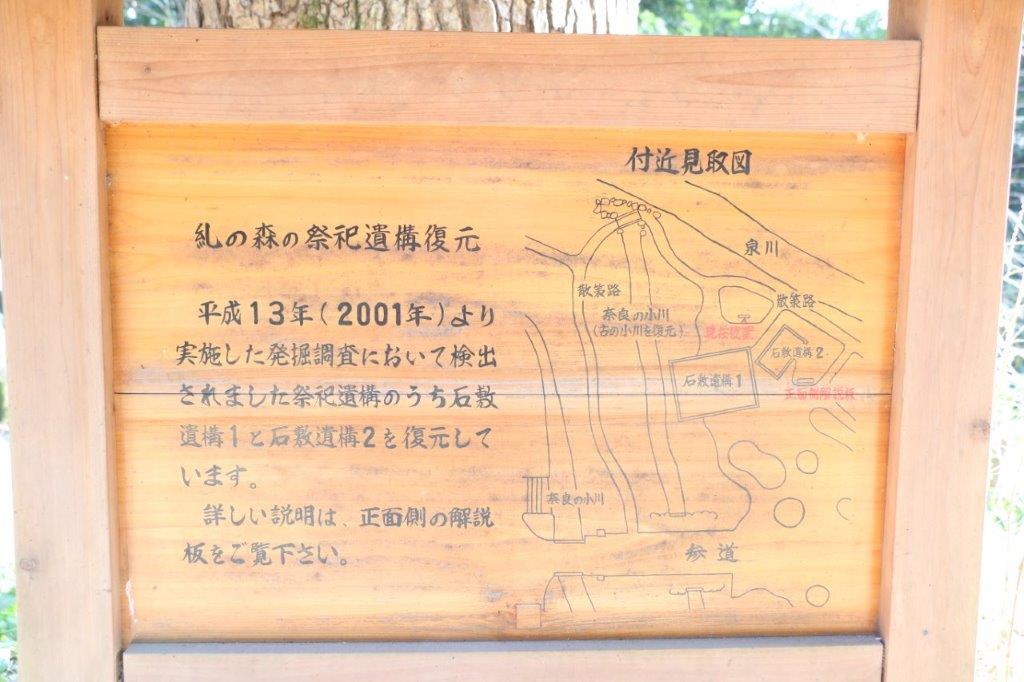 糺の森の祭祀遺構復元
平成13年(2001年)より
実施した発掘調査において検出
されました祭祀遺構のうち石敷
遺構1と石敷遺構2を復元して
います。
詳しい説明は、正面側の解説
板をご覧下さい。
付近見取図
泉川
散策路
散策路
奈良の小川
(古の小川を復元)
現在位置
石敷遺構2
石敷遺構1
正面側解説板
奈良の小川
参道